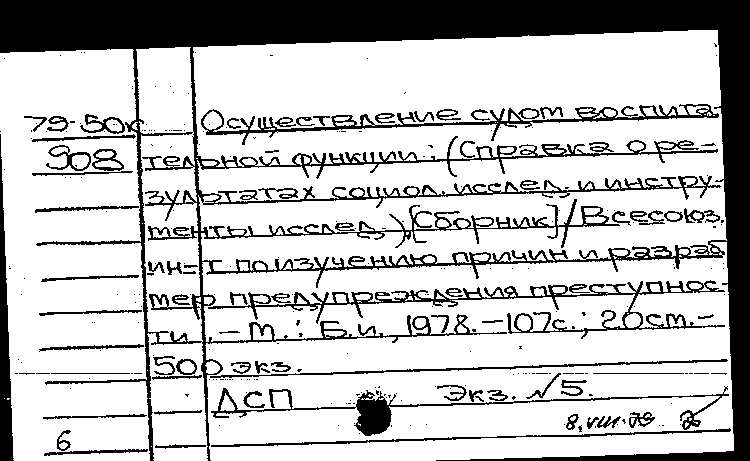 79-50к Осуществление судом воспита-
908 тельной функции: (Справка о ре-
зультатах социол. исслед. и инстру-
менты исслед.). [Сборник] / Всесоюз.
ин-т по изучению причин и разраб
мер предупреждения преступнос-
ти. - М.: Б.и., 1978. - 107с.; 20см. -
500 экз.
ДСП Экз. №5.
8.VIII.79
6